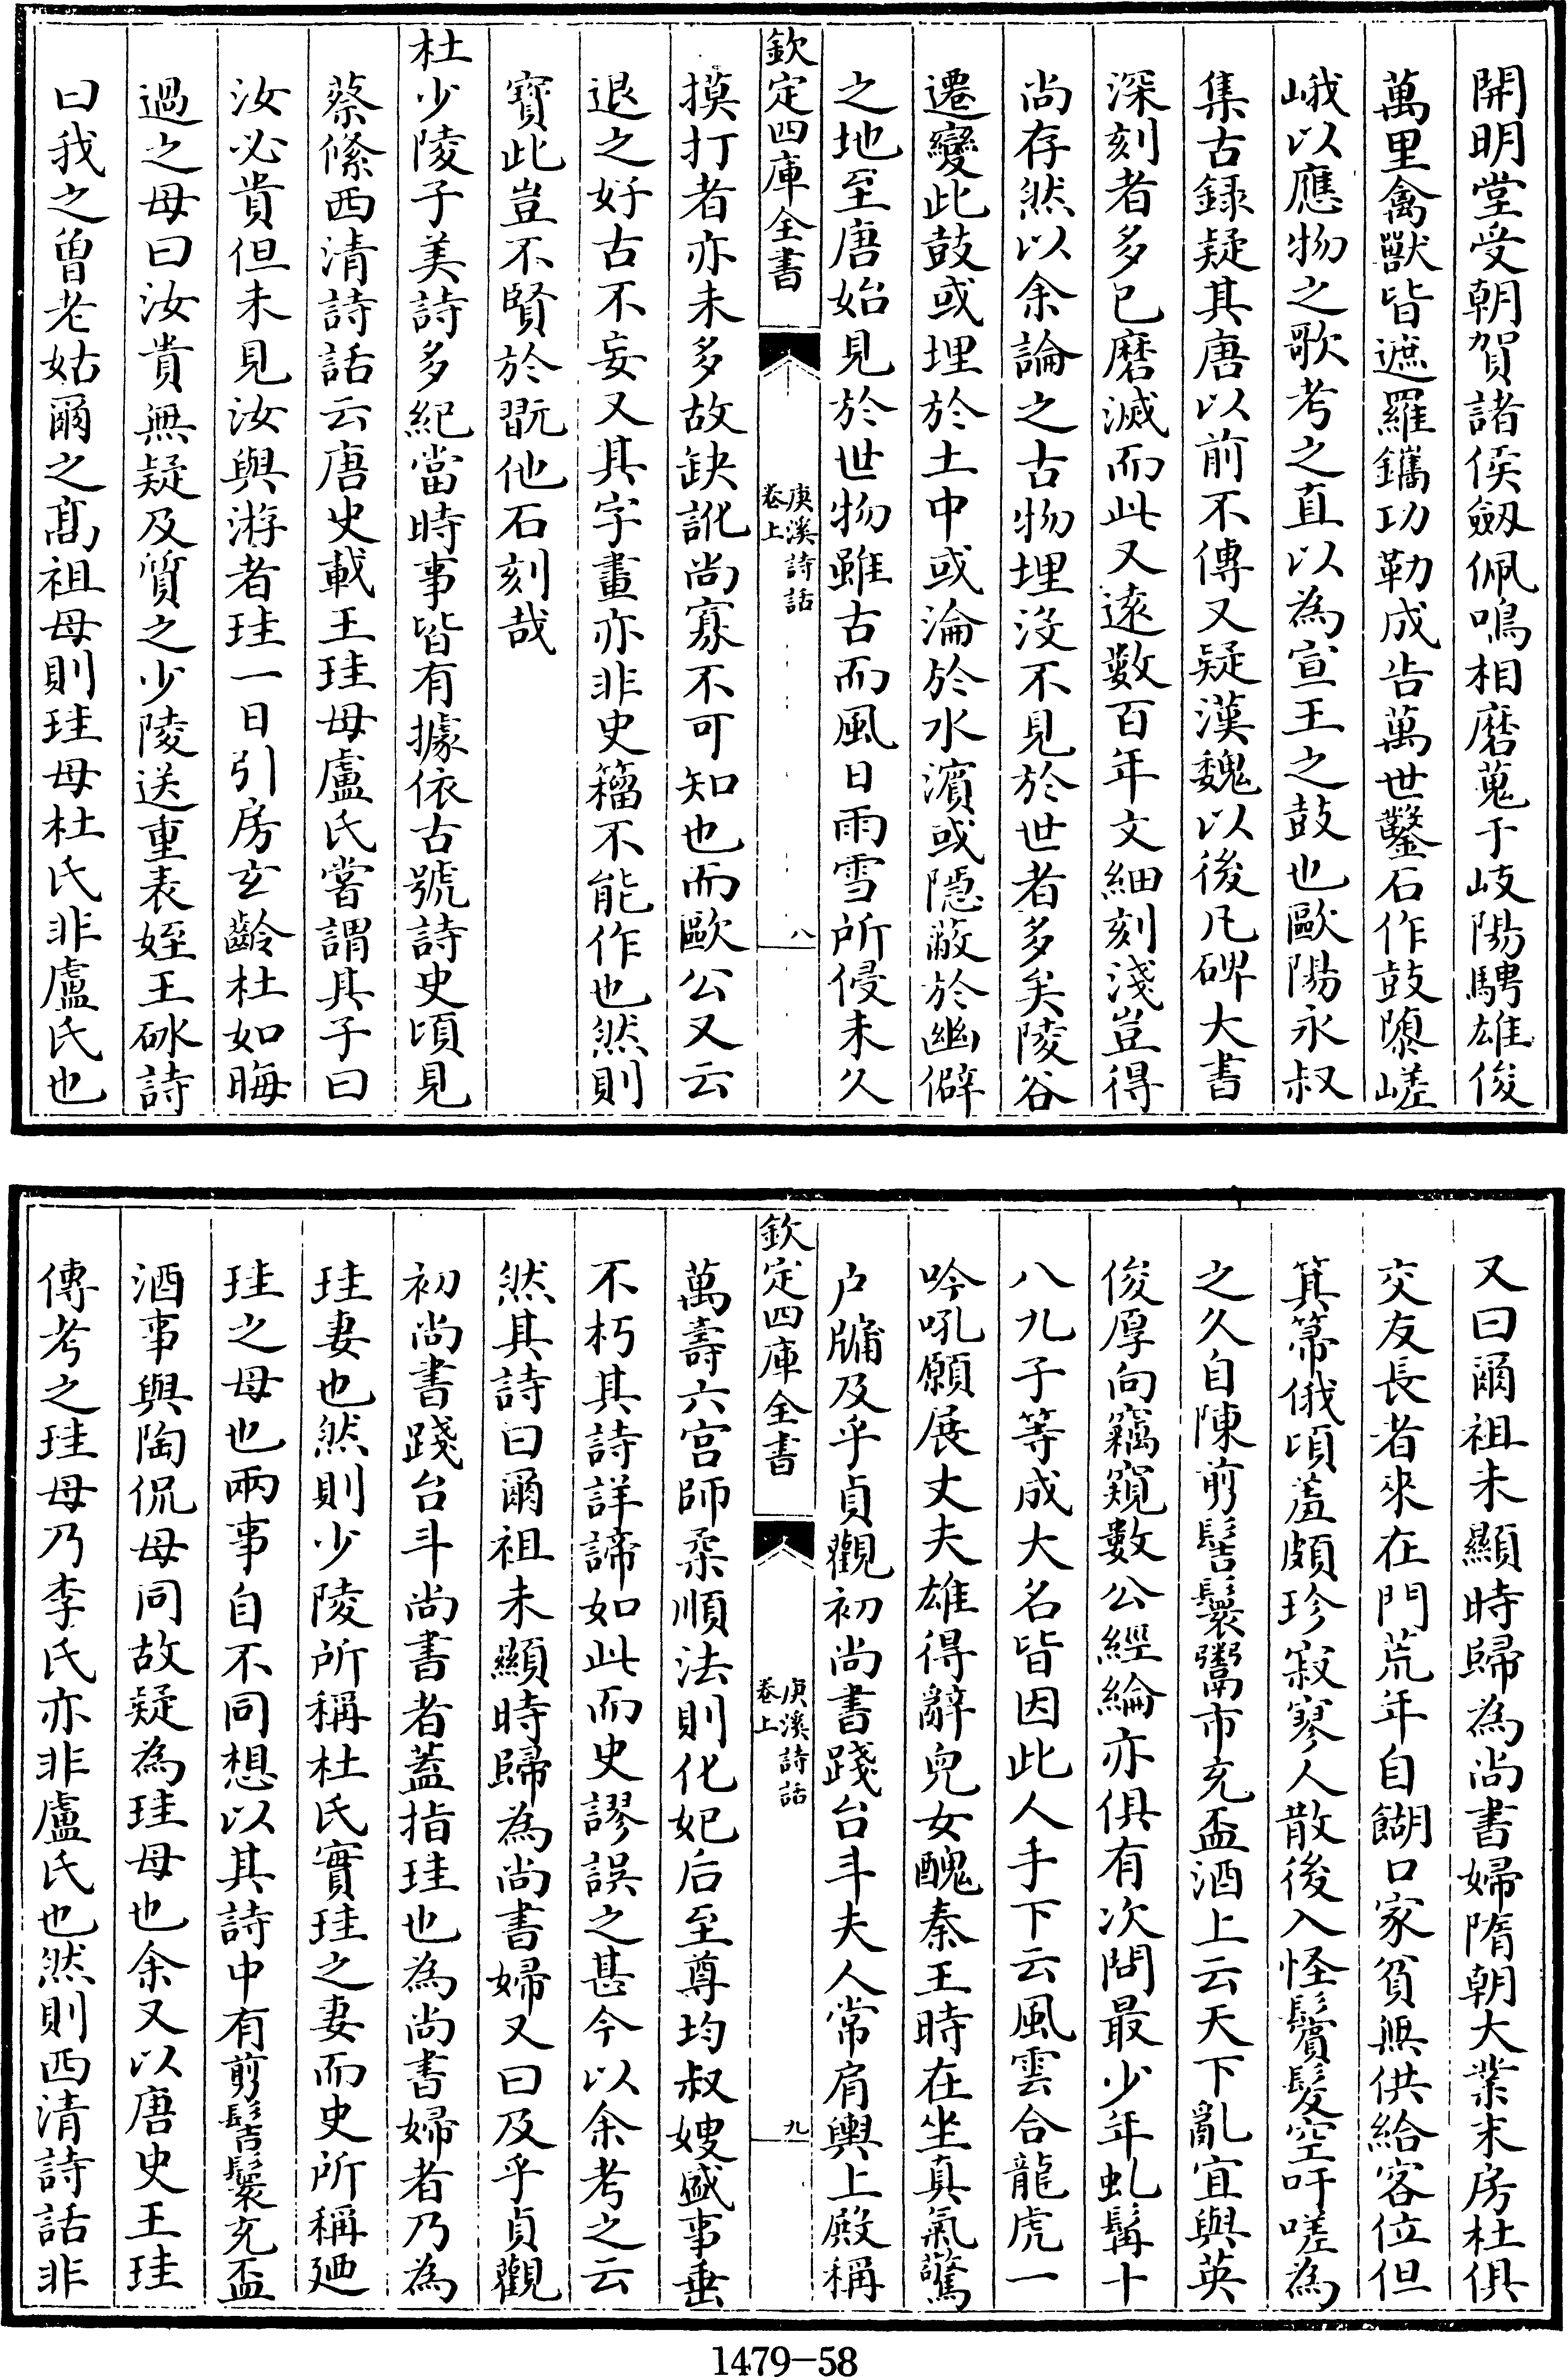 開明堂受朝賀諸侯劔佩鳴相磨蒐于岐陽騁雄俊
萬里禽獸皆遮羅鐫功勒成告萬世鑿石作鼓隳嵯
峨以應物之歌考之直以為宣王之鼓也歐陽永叔
集古錄疑其唐以前不傳又疑漢魏以後凡碑大書
深刻者多已磨滅而此又逺數百年文細刻淺豈得
尚存然以余論之古物埋沒不見於世者多矣陵谷
遷變此鼓或埋於土中或淪於水濱或隱蔽於幽僻
之地至唐始見於世物雖古而風日雨雪所侵未久
欽定四庫全書
庚溪詩話
卷上
八
摸打者亦未多故缺訛尚寡不可知也而歐公又云
退之好古不妄又其字畫亦非史籀不能作也然則
寳此豈不賢於翫他石刻哉
杜少陵子美詩多紀當時事皆有據依古號詩史頃見
蔡絛西清詩話云唐史載王珪母盧氏嘗謂其子曰
汝必貴但未見汝與游者珪一日引房玄齡杜如晦
過之母曰汝貴無疑及質之少陵送重表姪王砯詩
曰我之曽老姑爾之髙祖母則珪母杜氏非盧氏也
又曰爾祖未顯時歸為尚書婦隋朝大業末房杜俱
交友長者來在門荒年自餬口家貧無供給客位但
箕箒俄頃羞頗珍寂寥人散後入怪鬢髮空吁嗟為
之久自陳剪髻鬟鬻市充盃酒上云天下亂宜與英
俊厚向竊窺數公經綸亦俱有次問最少年虬髯十
八九子等成大名皆因此人手下云風雲合龍虎一
吟吼願展丈夫雄得辭兒女醜秦王時在坐真氣驚
户牖及乎貞觀初尚書踐台斗夫人常肩輿上殿稱
欽定四庫全書
庚溪詩話
卷上
九
萬壽六宫師柔順法則化妃后至尊均叔嫂盛事垂
不朽其詩詳諦如此而史謬誤之甚今以余考之云
然其詩曰爾祖未顯時歸為尚書婦又曰及乎貞觀
初尚書踐台斗尚書者蓋指珪也為尚書婦者乃為
珪妻也然則少陵所稱杜氏實珪之妻而史所稱廼
珪之母也兩事自不同想以其詩中有剪髻鬟充盃
酒事與陶侃母同故疑為珪母也余又以唐史王珪
傳考之珪母乃李氏亦非盧氏也然則西清詩話非
1479-58